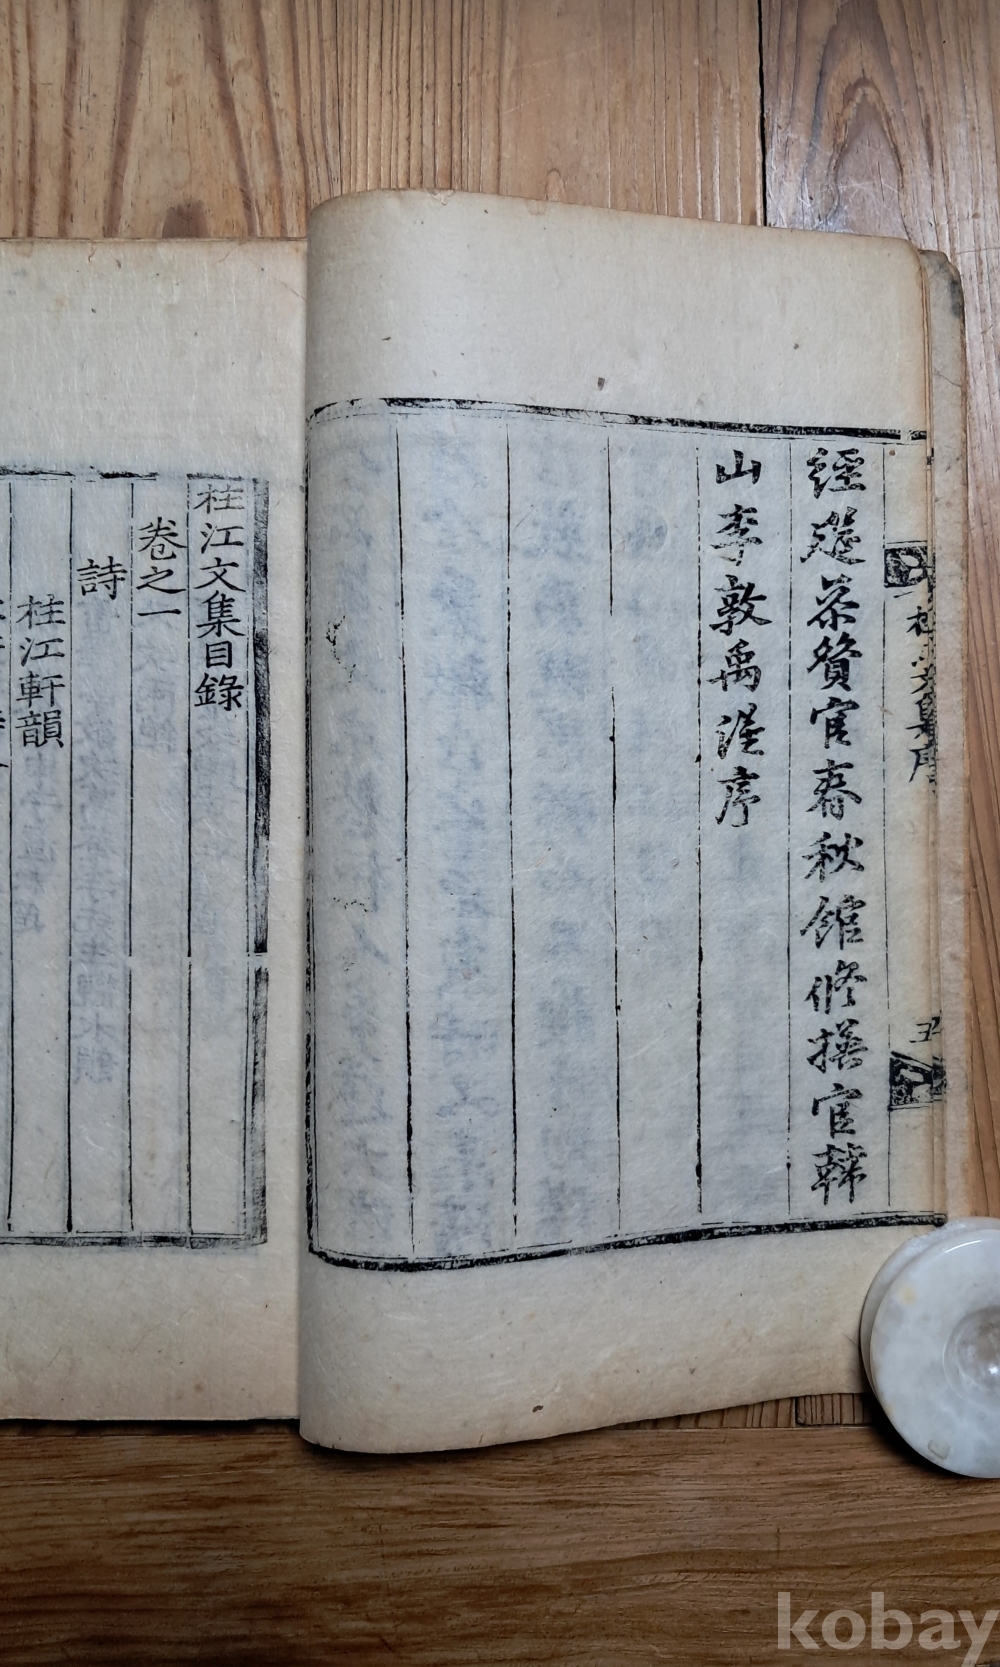 經筵參贊官春秋館修撰官韓
山李敦禹謹序
桂江文集目錄
卷之一
詩
桂江軒韻
kobay